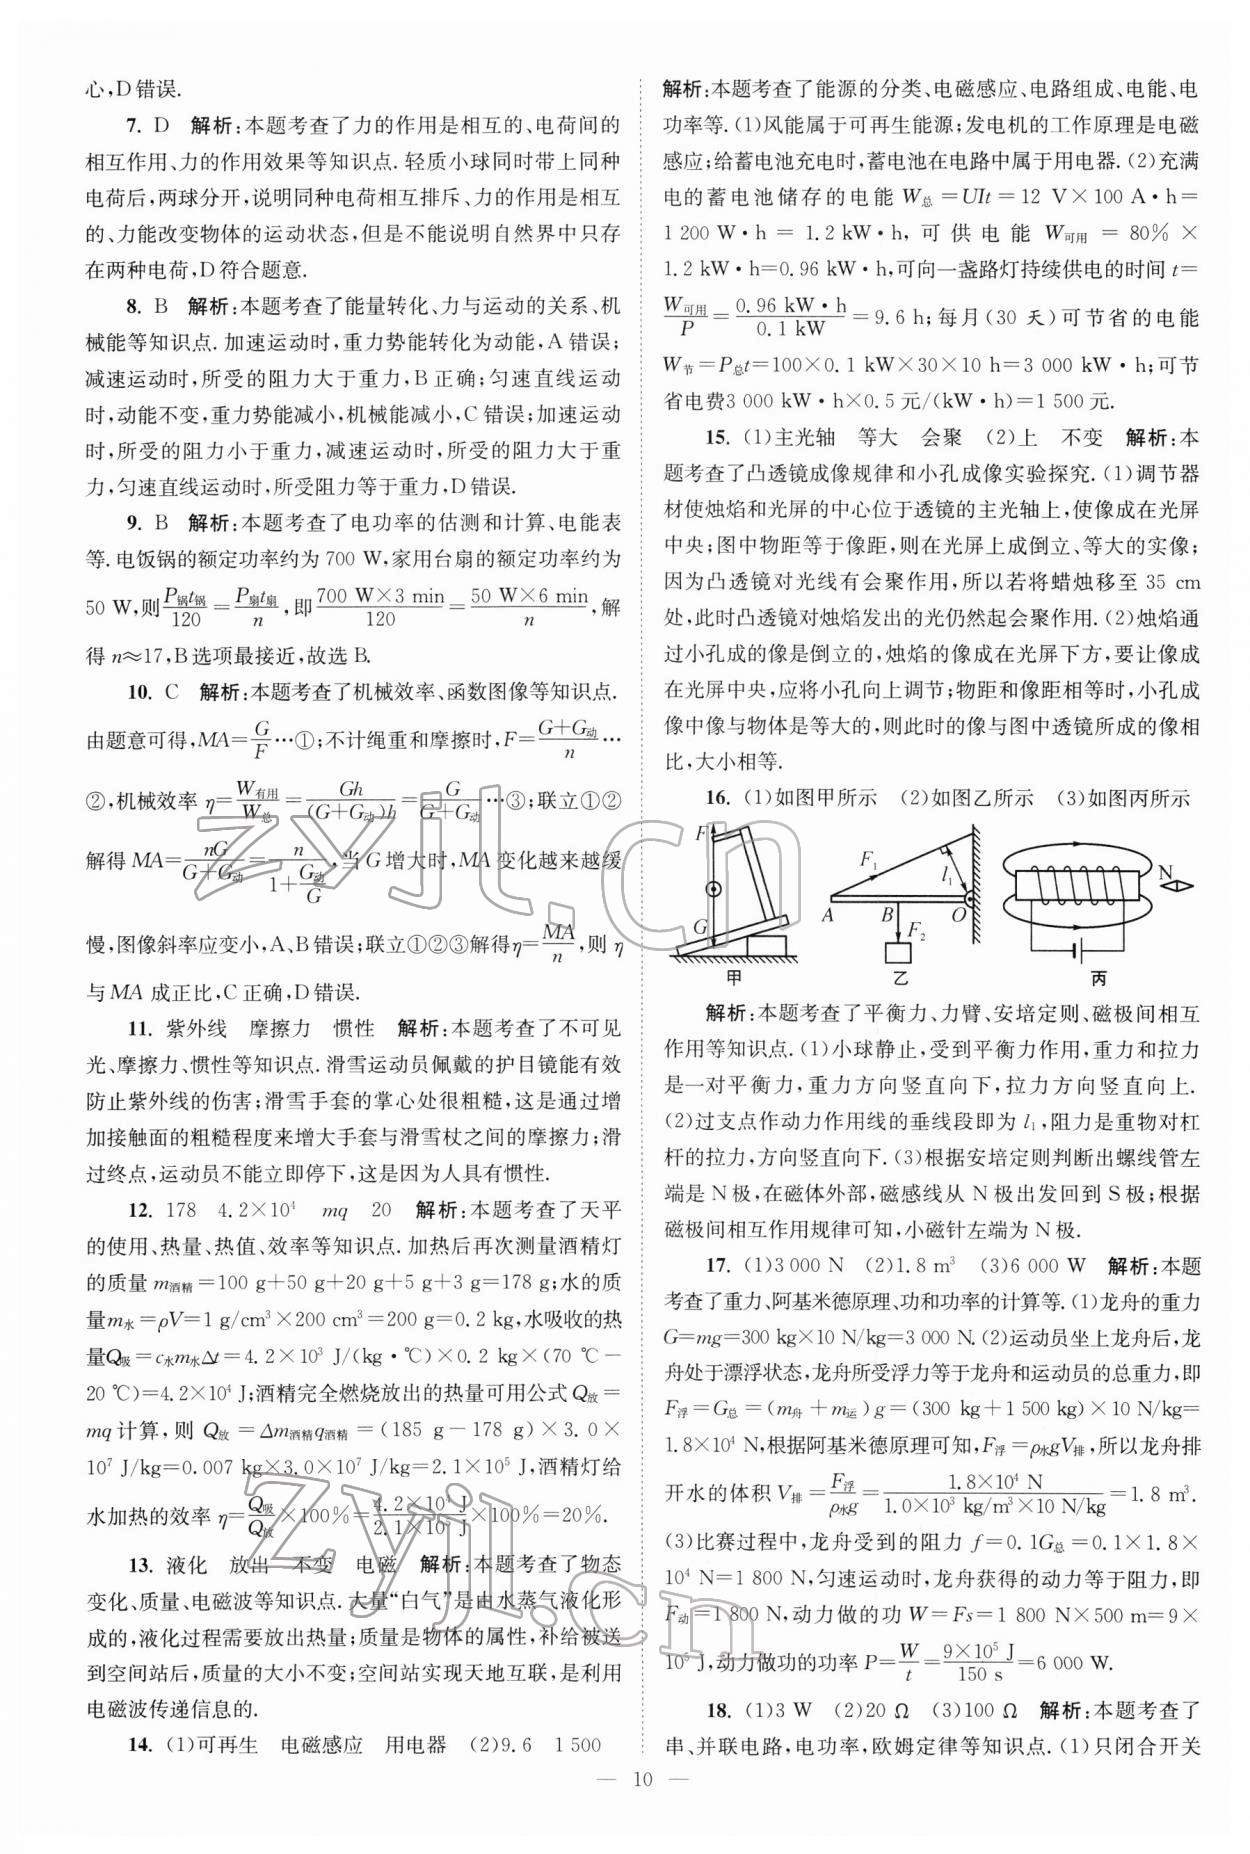 心,D错误.
7. D 解析:本题考查了力的作用是相互的、电荷间的
相互作用、力的作用效果等知识点.轻质小球同时带上同种
电荷后,两球分开,说明同种电荷相互排斥、力的作用是相互
的、力能改变物体的运动状态,但是不能说明自然界中只存
在两种电荷,D符合题意.
8. B 解析:本题考查了能量转化、力与运动的关系、机
械能等知识点.加速运动时,重力势能转化为动能,A错误;
减速运动时,所受的阻力大于重力,B正确;匀速直线运动
时,动能不变,重力势能减小,机械能减小,C错误;加速运动
时,所受的阻力小于重力,减速运动时,所受的阻力大于重
力,匀速直线运动时,所受阻力等于重力,D错误.
9. B 解析:本题考查了电功率的估测和计算、电能表
等.电饭锅的额定功率约为700 W,家用台扇的额定功率约为
50 W,则P锅t锅/120=P扇t扇/n,即700 W×3 min/120=50 W×6 min/n,解
得n≈17,B选项最接近,故选B.
10. C 解析:本题考查了机械效率、函数图像等知识点.
由题意可得,MA=G/F…①;不计绳重和摩擦时,F=G+G动/n…
②,机械效率η=W有用/W总=Gh/(G+G动)h=G/G+G动…③;联立①②
解得MA=nG/G+G动=n/1+G动/G,当G增大时,MA变化越来越缓
慢,图像斜率应变小,A、B错误;联立①②③解得η=MA/n,则η
与MA成正比,C正确,D错误.
11. 紫外线 摩擦力 惯性 解析:本题考查了不可见
光、摩擦力、惯性等知识点.滑雪运动员佩戴的护目镜能有效
防止紫外线的伤害;滑雪手套的掌心处很粗糙,这是通过增
加接触面的粗糙程度来增大手套与滑雪杖之间的摩擦力;滑
过终点,运动员不能立即停下,这是因为人具有惯性.
12. 178 4.2×10⁴ mq 20 解析:本题考查了天平
的使用、热量、热值、效率等知识点.加热后再次测量酒精灯
的质量m酒精=100 g+50 g+20 g+5 g+3 g=178 g;水的质
量m水=ρV=1 g/cm³×200 cm³=200 g=0.2 kg,水吸收的热
量Q吸=c水m水Δt=4.2×10³ J/(kg·℃)×0.2 kg×(70 ℃-
20 ℃)=4.2×10⁴ J;酒精完全燃烧放出的热量可用公式Q放=
mq计算,则Q放=Δm酒精q酒精=(185 g-178 g)×3.0×
10⁷ J/kg=0.007 kg×3.0×10⁷ J/kg=2.1×10⁵ J,酒精灯给
水加热的效率η=Q吸/Q放×100%=4.2×10⁴ J/2.1×10⁵ J×100%=20%.
13. 液化 放出 不变 电磁 解析:本题考查了物态
变化、质量、电磁波等知识点.大量“白气”是由水蒸气液化形
成的,液化过程需要放出热量;质量是物体的属性,补给被送
到空间站后,质量的大小不变;空间站实现天地互联,是利用
电磁波传递信息的.
14. (1)可再生 电磁感应 用电器 (2)9.6 1 500
解析:本题考查了能源的分类、电磁感应、电路组成、电能、电
功率等.(1)风能属于可再生能源;发电机的工作原理是电磁
感应;给蓄电池充电时,蓄电池在电路中属于用电器.(2)充满
电的蓄电池储存的电能W总=UIt=12 V×100 A·h=
1 200 W·h=1.2 kW·h,可供电能W可用=80%×
1.2 kW·h=0.96 kW·h,可向一盏路灯持续供电的时间t=
W可用/P=0.96 kW·h/0.1 kW=9.6 h;每月(30天)可节省的电能
W节=P总t=100×0.1 kW×30×10 h=3 000 kW·h;可节
省电费3 000 kW·h×0.5元/(kW·h)=1 500元.
15. (1)主光轴 等大 会聚 (2)上 不变 解析:本
题考查了凸透镜成像规律和小孔成像实验探究.(1)调节器
材使烛焰和光屏的中心位于透镜的主光轴上,使像成在光屏
中央;图中物距等于像距,则在光屏上成倒立、等大的实像;
因为凸透镜对光线有会聚作用,所以若将蜡烛移至35 cm
处,此时凸透镜对烛焰发出的光仍然起会聚作用.(2)烛焰通
过小孔成的像是倒立的,烛焰的像成在光屏下方,要让像成
在光屏中央,应将小孔向上调节;物距和像距相等时,小孔成
像中像与物体是等大的,则此时的像与图中透镜所成的像相
比,大小相等.
16. (1)如图甲所示 (2)如图乙所示 (3)如图丙所示
F G 甲
F₁ l₁ A B O F₂ 乙
N 丙
解析:本题考查了平衡力、力臂、安培定则、磁极间相互
作用等知识点.(1)小球静止,受到平衡力作用,重力和拉力
是一对平衡力,重力方向竖直向下,拉力方向竖直向上.
(2)过支点作动力作用线的垂线段即为l₁,阻力是重物对杠
杆的拉力,方向竖直向下.(3)根据安培定则判断出螺线管左
端是N极,在磁体外部,磁感线从N极出发回到S极;根据
磁极间相互作用规律可知,小磁针左端为N极.
17. (1)3 000 N (2)1.8 m³ (3)6 000 W 解析:本题
考查了重力、阿基米德原理、功和功率的计算等.(1)龙舟的重力
G=mg=300 kg×10 N/kg=3 000 N.(2)运动员坐上龙舟后,龙
舟处于漂浮状态,龙舟所受浮力等于龙舟和运动员的总重力,即
F浮=G总=(m舟+m运)g=(300 kg+1 500 kg)×10 N/kg=
1.8×10⁴ N,根据阿基米德原理可知,F浮=ρ水gV排,所以龙舟排
开水的体积V排=F浮/ρ水g=1.8×10⁴ N/1.0×10³ kg/m³×10 N/kg=1.8 m³.
(3)比赛过程中,龙舟受到的阻力f=0.1G总=0.1×1.8×
10⁴ N=1 800 N,匀速运动时,龙舟获得的动力等于阻力,即
F动=1 800 N,动力做的功W=Fs=1 800 N×500 m=9×
10⁵ J,动力做功的功率P=W/t=9×10⁵ J/150 s=6 000 W.
18. (1)3 W (2)20 Ω (3)100 Ω 解析:本题考查了
串、并联电路,电功率,欧姆定律等知识点.(1)只闭合开关
— 10 —
zyjl.cn
zyjl.cn